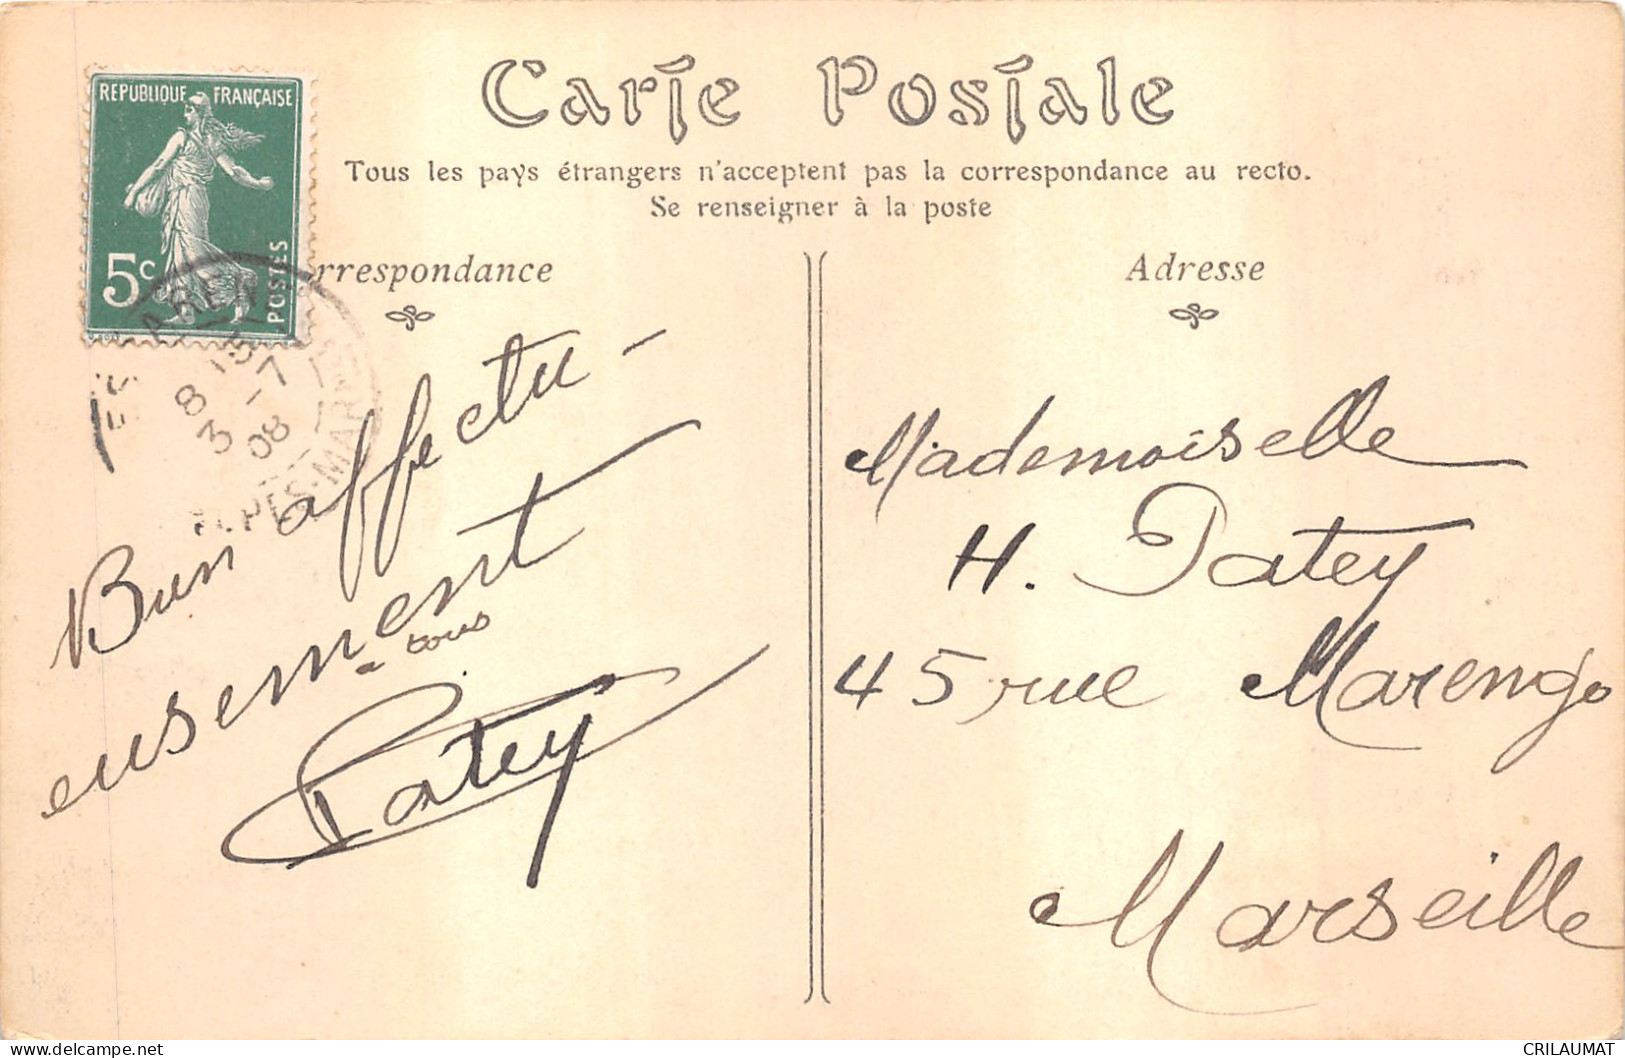 Carte Postale
Tous les pays étrangers n'acceptent pas la correspondance au recto.
Se renseigner à la poste
REPUBLIQUE FRANÇAISE
5c
POSTES
rrespondance
Adresse
8 15
3 -7
08
ALPES-MAR
Bien affectu-
eusement
a tous
Patey
Mademoiselle
H. Patey
45 rue Marengo
Marseille
delcampe.net
CRILAUMAT